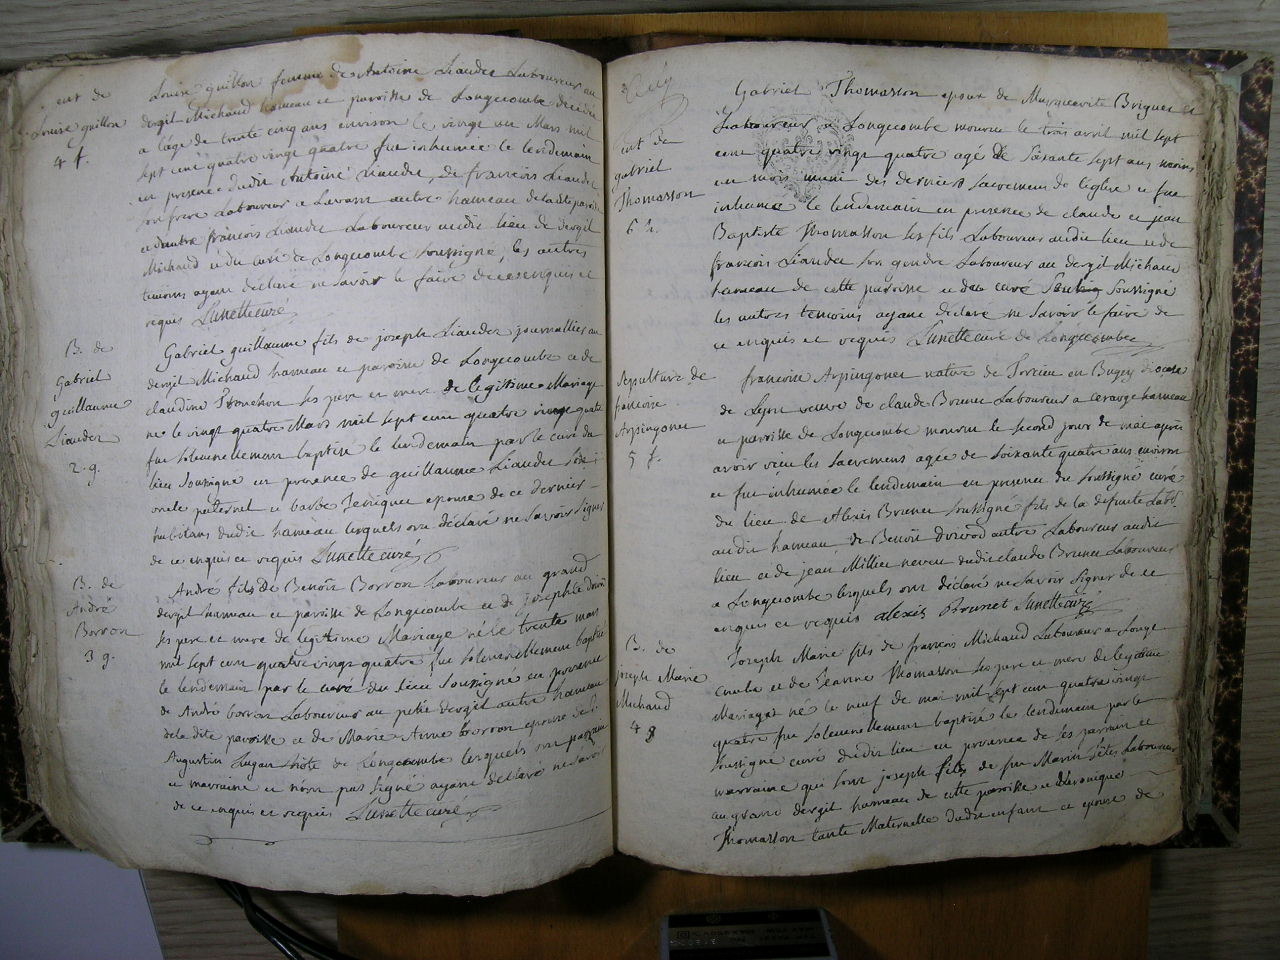 ent de
Louise guillon
4 f.
Louise guillon femme de Antoine Liaudet Laboureur au
dergit Michaud hameau et paroisse de Longecombe decedée
a l'age de trente cinq ans environ le vingt un Mars mil
sept cent quatre vingt quatre fut inhumée le lendemain
en presence dudit Antoine Liaudet, de francois Liaudet
son frere Laboureur a Lavant autre hameau de ladite paroisse
et d'autre francois Liaudet Laboureur audit lieu de dergit
Michaud et du curé de Longecombe soussigné, les autres
temoins ayant declaré ne savoir le faire de ce enquis et
requis Lunette curé
B. de
Gabriel
guillaume
Liaudet
2. g.
Gabriel guillaume fils de joseph Liaudet journallier au
dergit Michaud hameau et paroisse de Longecombe et de
claudine Tronchon ses pere et mere de legitime Mariage
né le vingt quatre Mars mil sept cent quatre vingt quatre
fut solemnellement baptisé le lendemain par le curé du
lieu soussigné en presence de guillaume Liaudet son
oncle paternel et barbe Jevrignet epouse de ce dernier
habitans dudit hameau lesquels ont déclaré ne savoir signer
de ce enquis et requis Lunette curé
B. de
André
Borron
3 g.
André fils de Benoit Borron Laboureur au grand
dergit hameau et paroisse de Longecombe et de josephte
ses pere et mere de legitime Mariage né le trente mars
mil sept cent quatre vingt quatre fut solemnellement baptisé
le lendemain par le curé du lieu soussigné en presence
de André borron Laboureur au petit dergit autre hameau
de la dite paroisse et de Marie Anne borron epouse de
Augustin Jugan hôte de Longecombe lesquels ont parrain
et marraine et n'ont pas signé ayant declaré ne savoir
de ce enquis et requis Lunette curé
ent de
gabriel
Thomasson
6 h.
Gabriel Thomasson epoux de Marguerite Briguet et
Laboureur a Longecombe mourut le trois avril mil sept
cent quatre vingt quatre agé de soixante sept ans moins
un mois muni des derniers sacremens de l'eglise et fut
inhumée le lendemain en presence de claude et jean
Baptiste Thomasson ses fils Laboureur audit lieu et de
francois Liaudet son gendre Laboureur au dergit Michaud
hameau de cette paroisse et du curé soussigné
les autres temoins ayant declaré ne savoir le faire de
ce enquis et requis Lunette curé de Longecombe
Sepulture de
francoise
Arpingonet
5 f.
francoise Arpingonet native de Torcieu en Bugey diocese
de Lyon veuve de claude Brunet Laboureur a hameau
et paroisse de Longecombe mourut le second jour de mai après
avoir reçu les sacremens agée de soixante quatre ans environ
et fut inhumée le lendemain en presence du soussigné curé
du lieu de Alexis Brunet soussigné fils de la defunte Labr
audit hameau, de Benoit autre Laboureur audit
lieu et de jean Millet neveu dudit claude Brunet Laboureur
a Longecombe lesquels ont déclaré ne savoir signer de ce
enquis et requis alexis Brunet Lunette curé
B. de
joseph Marie
Michaud
4 g
Joseph Marie fils de francois Michaud Laboureur a Longe
combe et de Jeanne Thomasson ses pere et mere de legitime
Mariage né le neuf de mai mil sept cent quatre vingt
quatre fut solemnellement baptisé le lendemain par le
soussigné curé dudit lieu en presence de ses parrain et
marraine qui sont joseph fils de feu Marin Laboureur
au grand dergit hameau de cette paroisse et Veronique
Thomasson tante Maternelle dudit enfant et epouse de